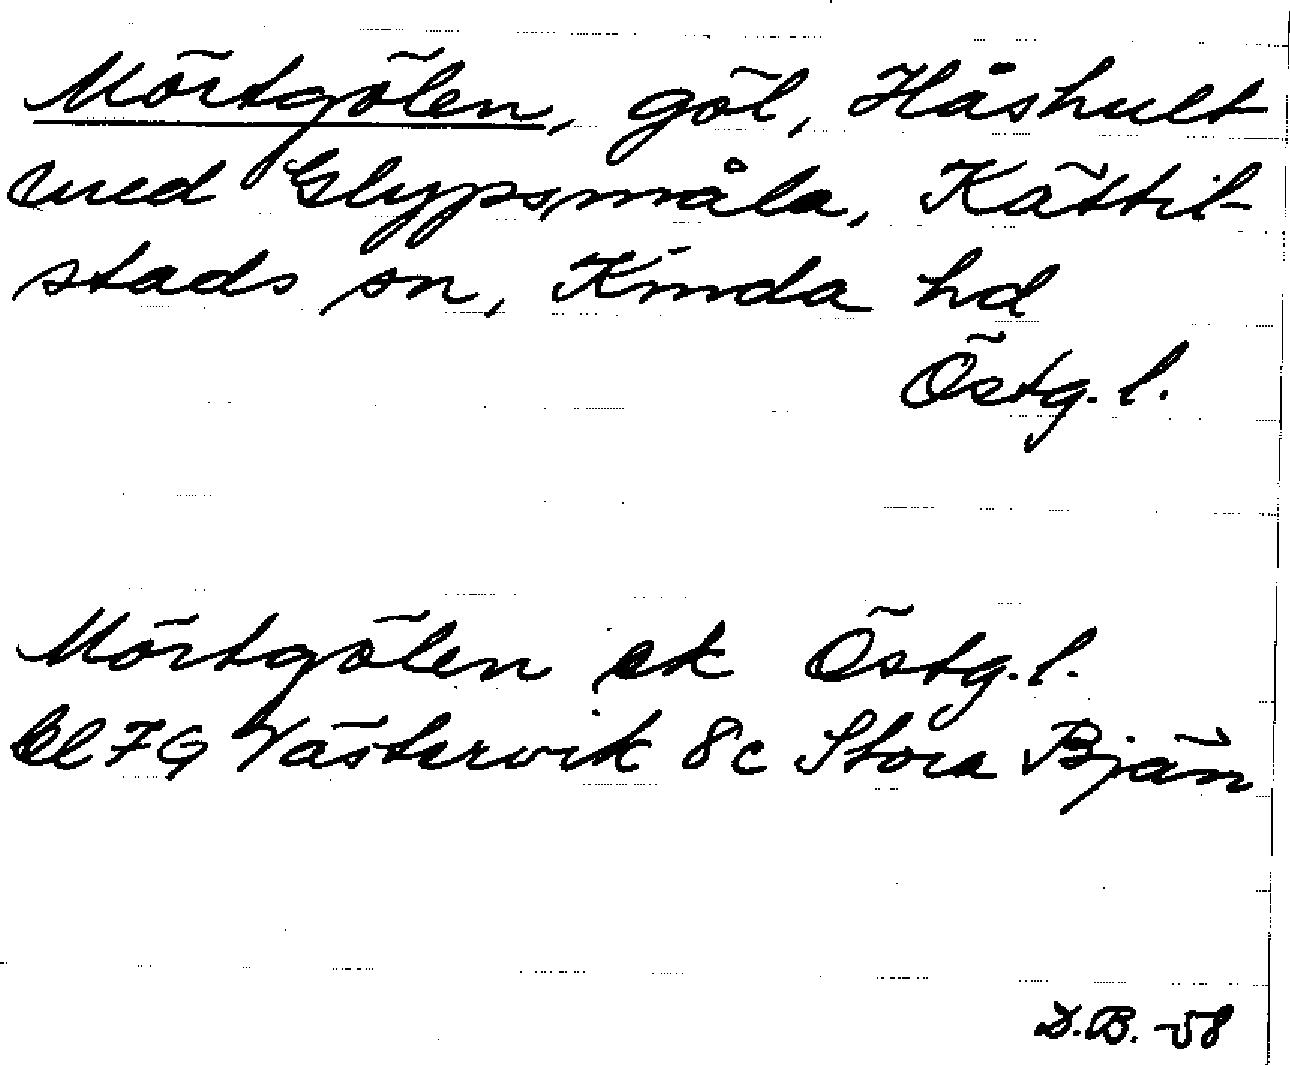 Mörtgölen, göl, Håshult
med Glypsmåla, Kättil-
stads sn, Kinda hd
Östg. l.
Mörtgölen ek Östg. l.
Bl 7G Västervik 8c Stora Bjän
D.B. -58